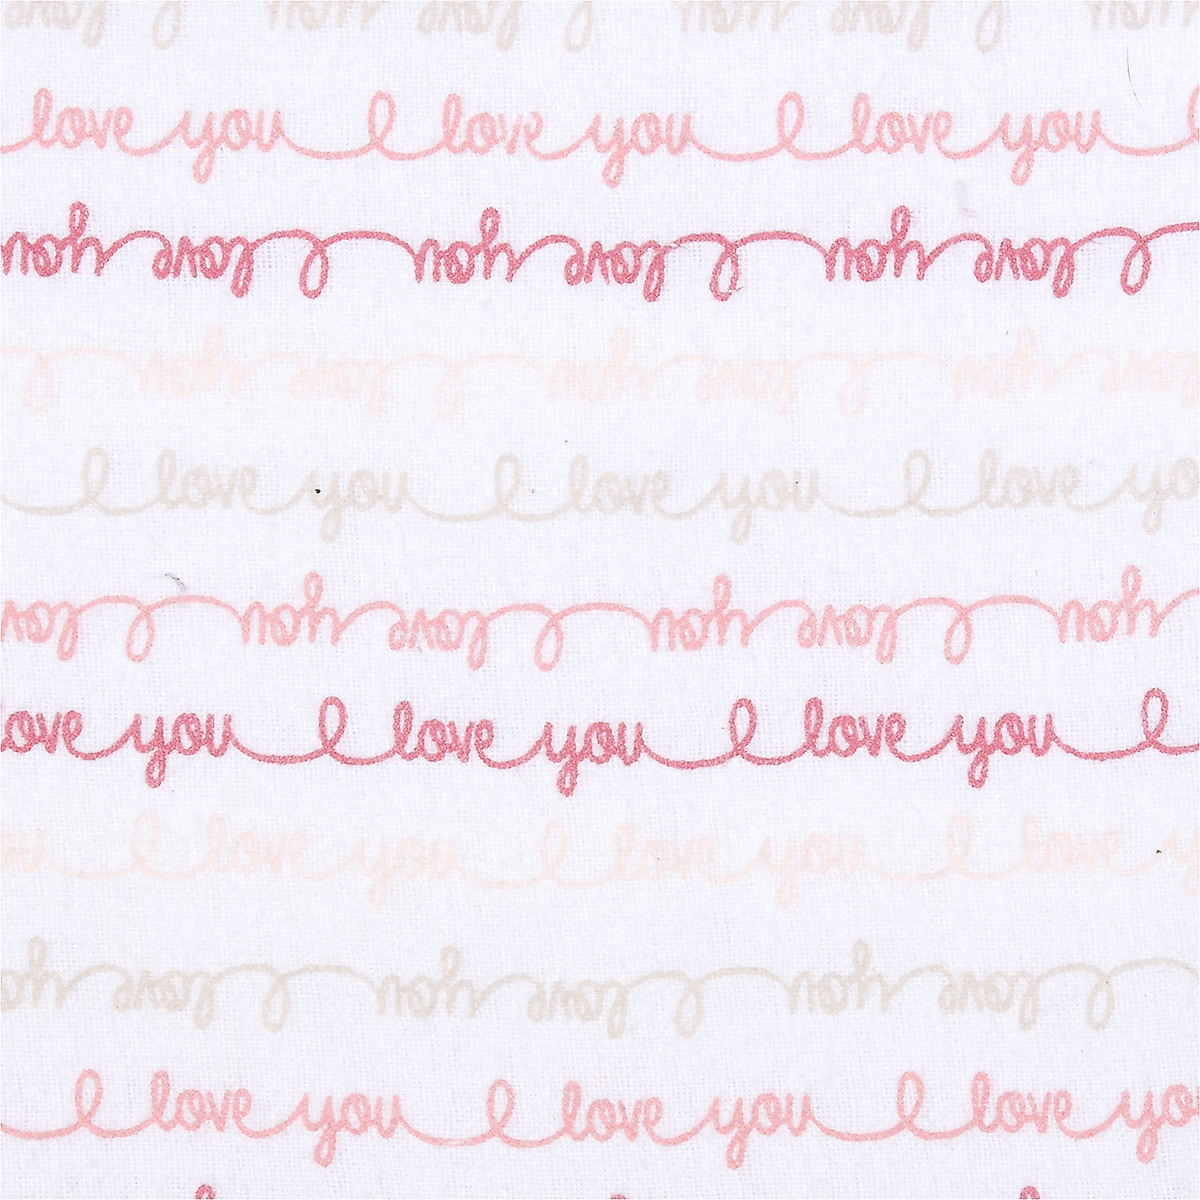 you I love you I love you
love you I love you I love you I
you I love you I love you I
I love you I love you I love
I love you I love you I love yo
love I you I love you I love you
love you I love you I love you I
I love you I love you I love
you I love you I love you I
I love you I love you I love yo